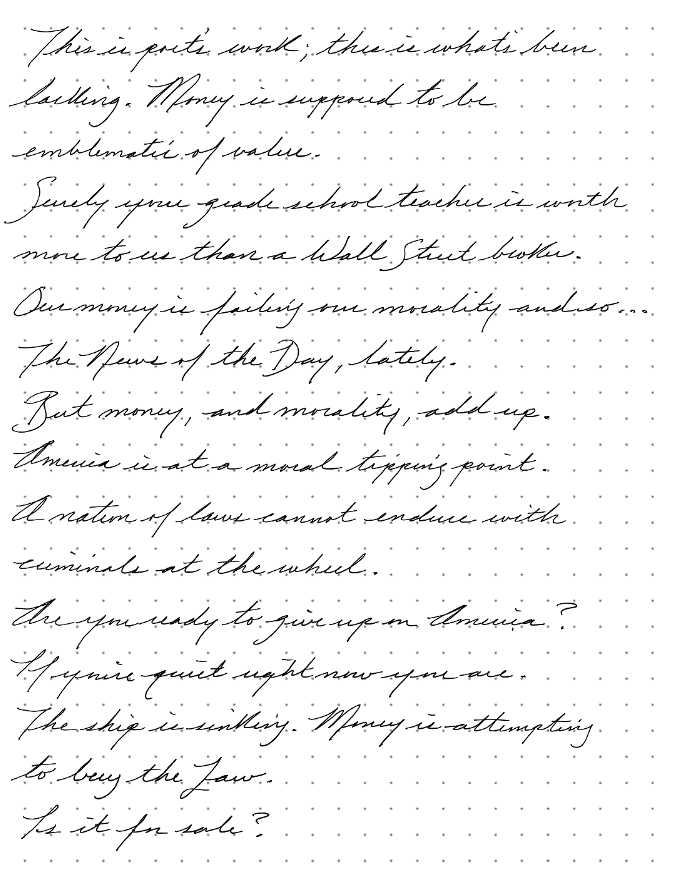 This is poet's work; this is what's been
lacking. Money is supposed to be
emblematic of value.
Surely your grade school teacher is worth
more to us than a Wall Street broker.
Our money is failing our morality and so...
The News of the Day, lately.
But money, and morality, add up.
America is at a moral tipping point.
A nation of laws cannot endure with
criminals at the wheel.
Are you ready to give up on America?
If you're quiet right now you are.
The ship is sinking. Money is attempting
to buy the Law.
Is it for sale?